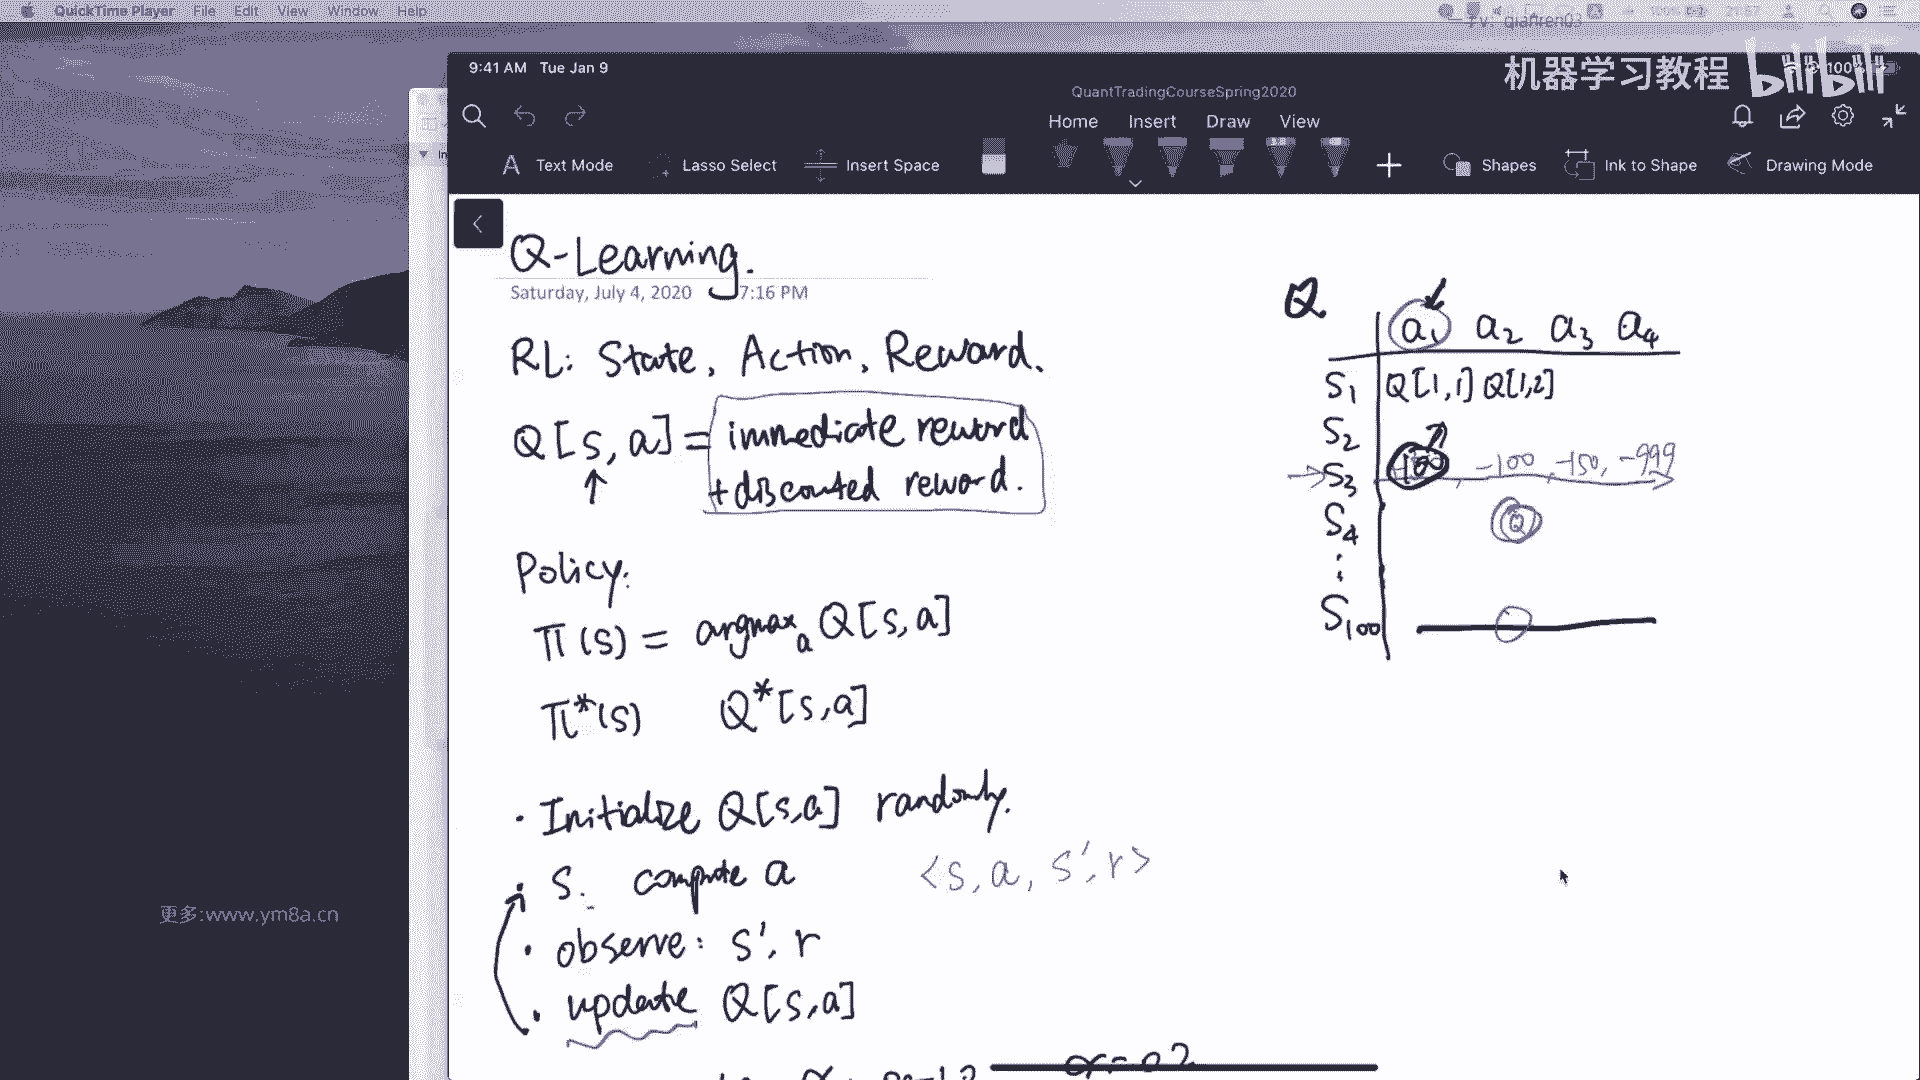 QuickTime Player File Edit View Window Help
9:41 AM Tue Jan 9
机器学习教程 bilibili
100%
QuantTradingCourseSpring2020
Home Insert Draw View
Text Mode Lasso Select Insert Space Shapes Ink to Shape Drawing Mode
Q-Learning.
Saturday, July 4, 2020 7:16 PM
RL: State, Action, Reward.
Q[s,a] = immediate reward
+ discounted reward.
Policy:
π(s) = argmax a Q[s,a]
π*(s) Q*[s,a]
· Initialize Q[s,a] randomly.
· s. compute a <s, a, s', r>
· observe: s', r
· update Q[s,a]
Q
a1 a2 a3 a4
S1 Q[1,1] Q[1,2]
S2
S3 100, -100, -150, -999
S4 Q
⋮
S100
更多:www.ym8a.cn